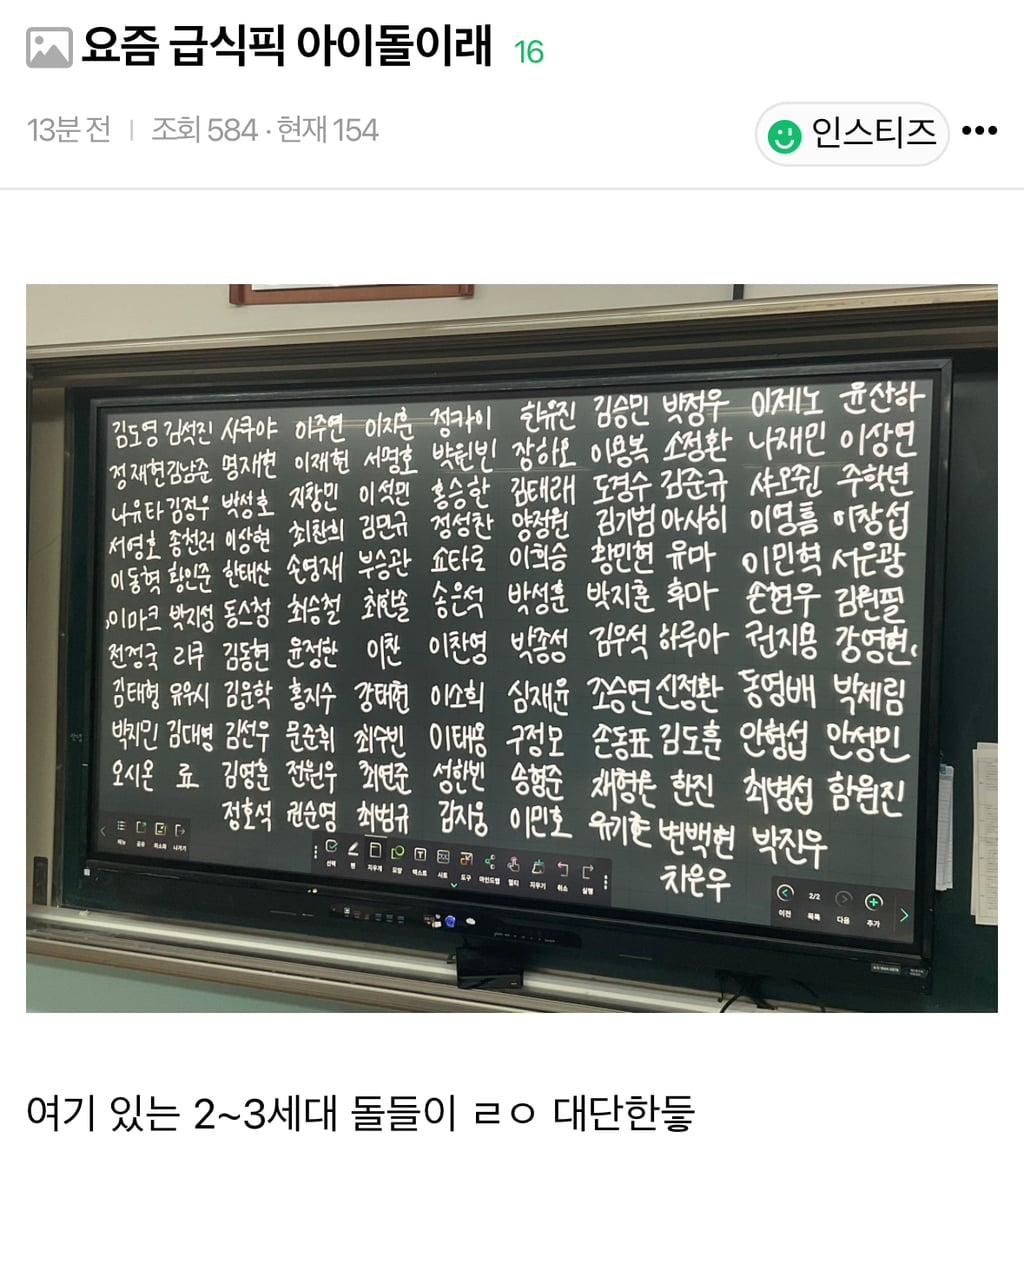 요즘 급식픽 아이돌이래 16
13분 전 | 조회 584 · 현재 154
인스티즈
김도영 김석진 사쿠야 이주연 이지훈 정카이 한유진 김승민 박정우 이제노 윤산하
정재현 김남준 명재현 이재현 서명호 박원빈 장하오 이용복 소정환 나재민 이상연
나유타 김정우 박성호 지창민 이석민 홍승한 김태래 도경수 김준규 샤오쥔 주학년
서영호 종천러 이상현 최찬희 김민규 정성찬 양정원 김기범 아사히 이영흠 이창섭
이동혁 황인준 한태산 손영재 부승관 쇼타로 이희승 황민현 유마 이민혁 서은광
이마크 박지성 동스청 최승철 최한솔 송은석 박성훈 박지훈 후마 손현우 김원필
전정국 리쿠 김동현 윤정한 이찬 이찬영 박종성 김우석 하루아 권지용 강영현
김태형 유우시 김운학 홍지수 강태현 이소희 심재윤 조승연 신정환 동영배 박세림
박지민 김대영 김선우 문준휘 최수빈 이태용 구정모 손동표 김도훈 안형섭 안성민
오시온 료 김영훈 전원우 최연준 성한빈 송형준 채형원 한진 최병섭 함원진
정호석 권순영 최범규 김지웅 이민호 유기현 변백현 박진우
차은우
메뉴 공유 최소화 나가기
선택 펜 지우개 모양 텍스트 시트 도구 마인드맵 멀티 지우기 취소 실행
이전 2/2 목록 다음 추가
여기 있는 2~3세대 돌들이 ㄹㅇ 대단한듷